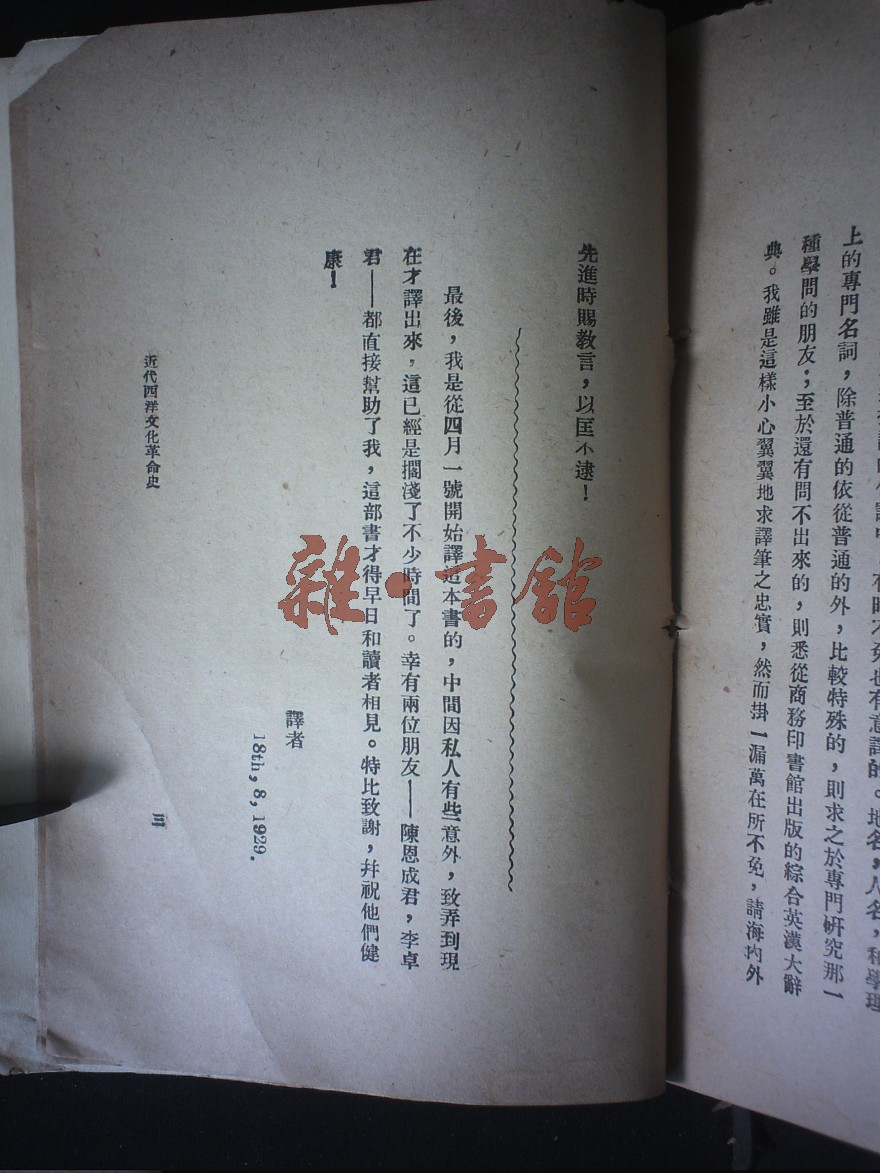 上的專門名詞，除普通的依從普通的外，比較特殊的，則求之於專門研究那一
種學問的朋友；至於還有問不出來的，則悉從商務印書館出版的綜合英漢大辭
典。我雖是這樣小心翼翼地求譯筆之忠實，然而掛一漏萬在所不免，請海內外
先進時賜教言，以匡不逮！
最後，我是從四月一號開始譯這本書的，中間因私人有些意外，致弄到現
在才譯出來，這已經是擱淺了不少時間了。幸有兩位朋友——陳恩成君，李卓
君——都直接幫助了我，這部書才得早日和讀者相見。特比致謝，幷祝他們健
康！
譯者
18th, 8, 1929.
近代西洋文化革命史
三
雜·書館